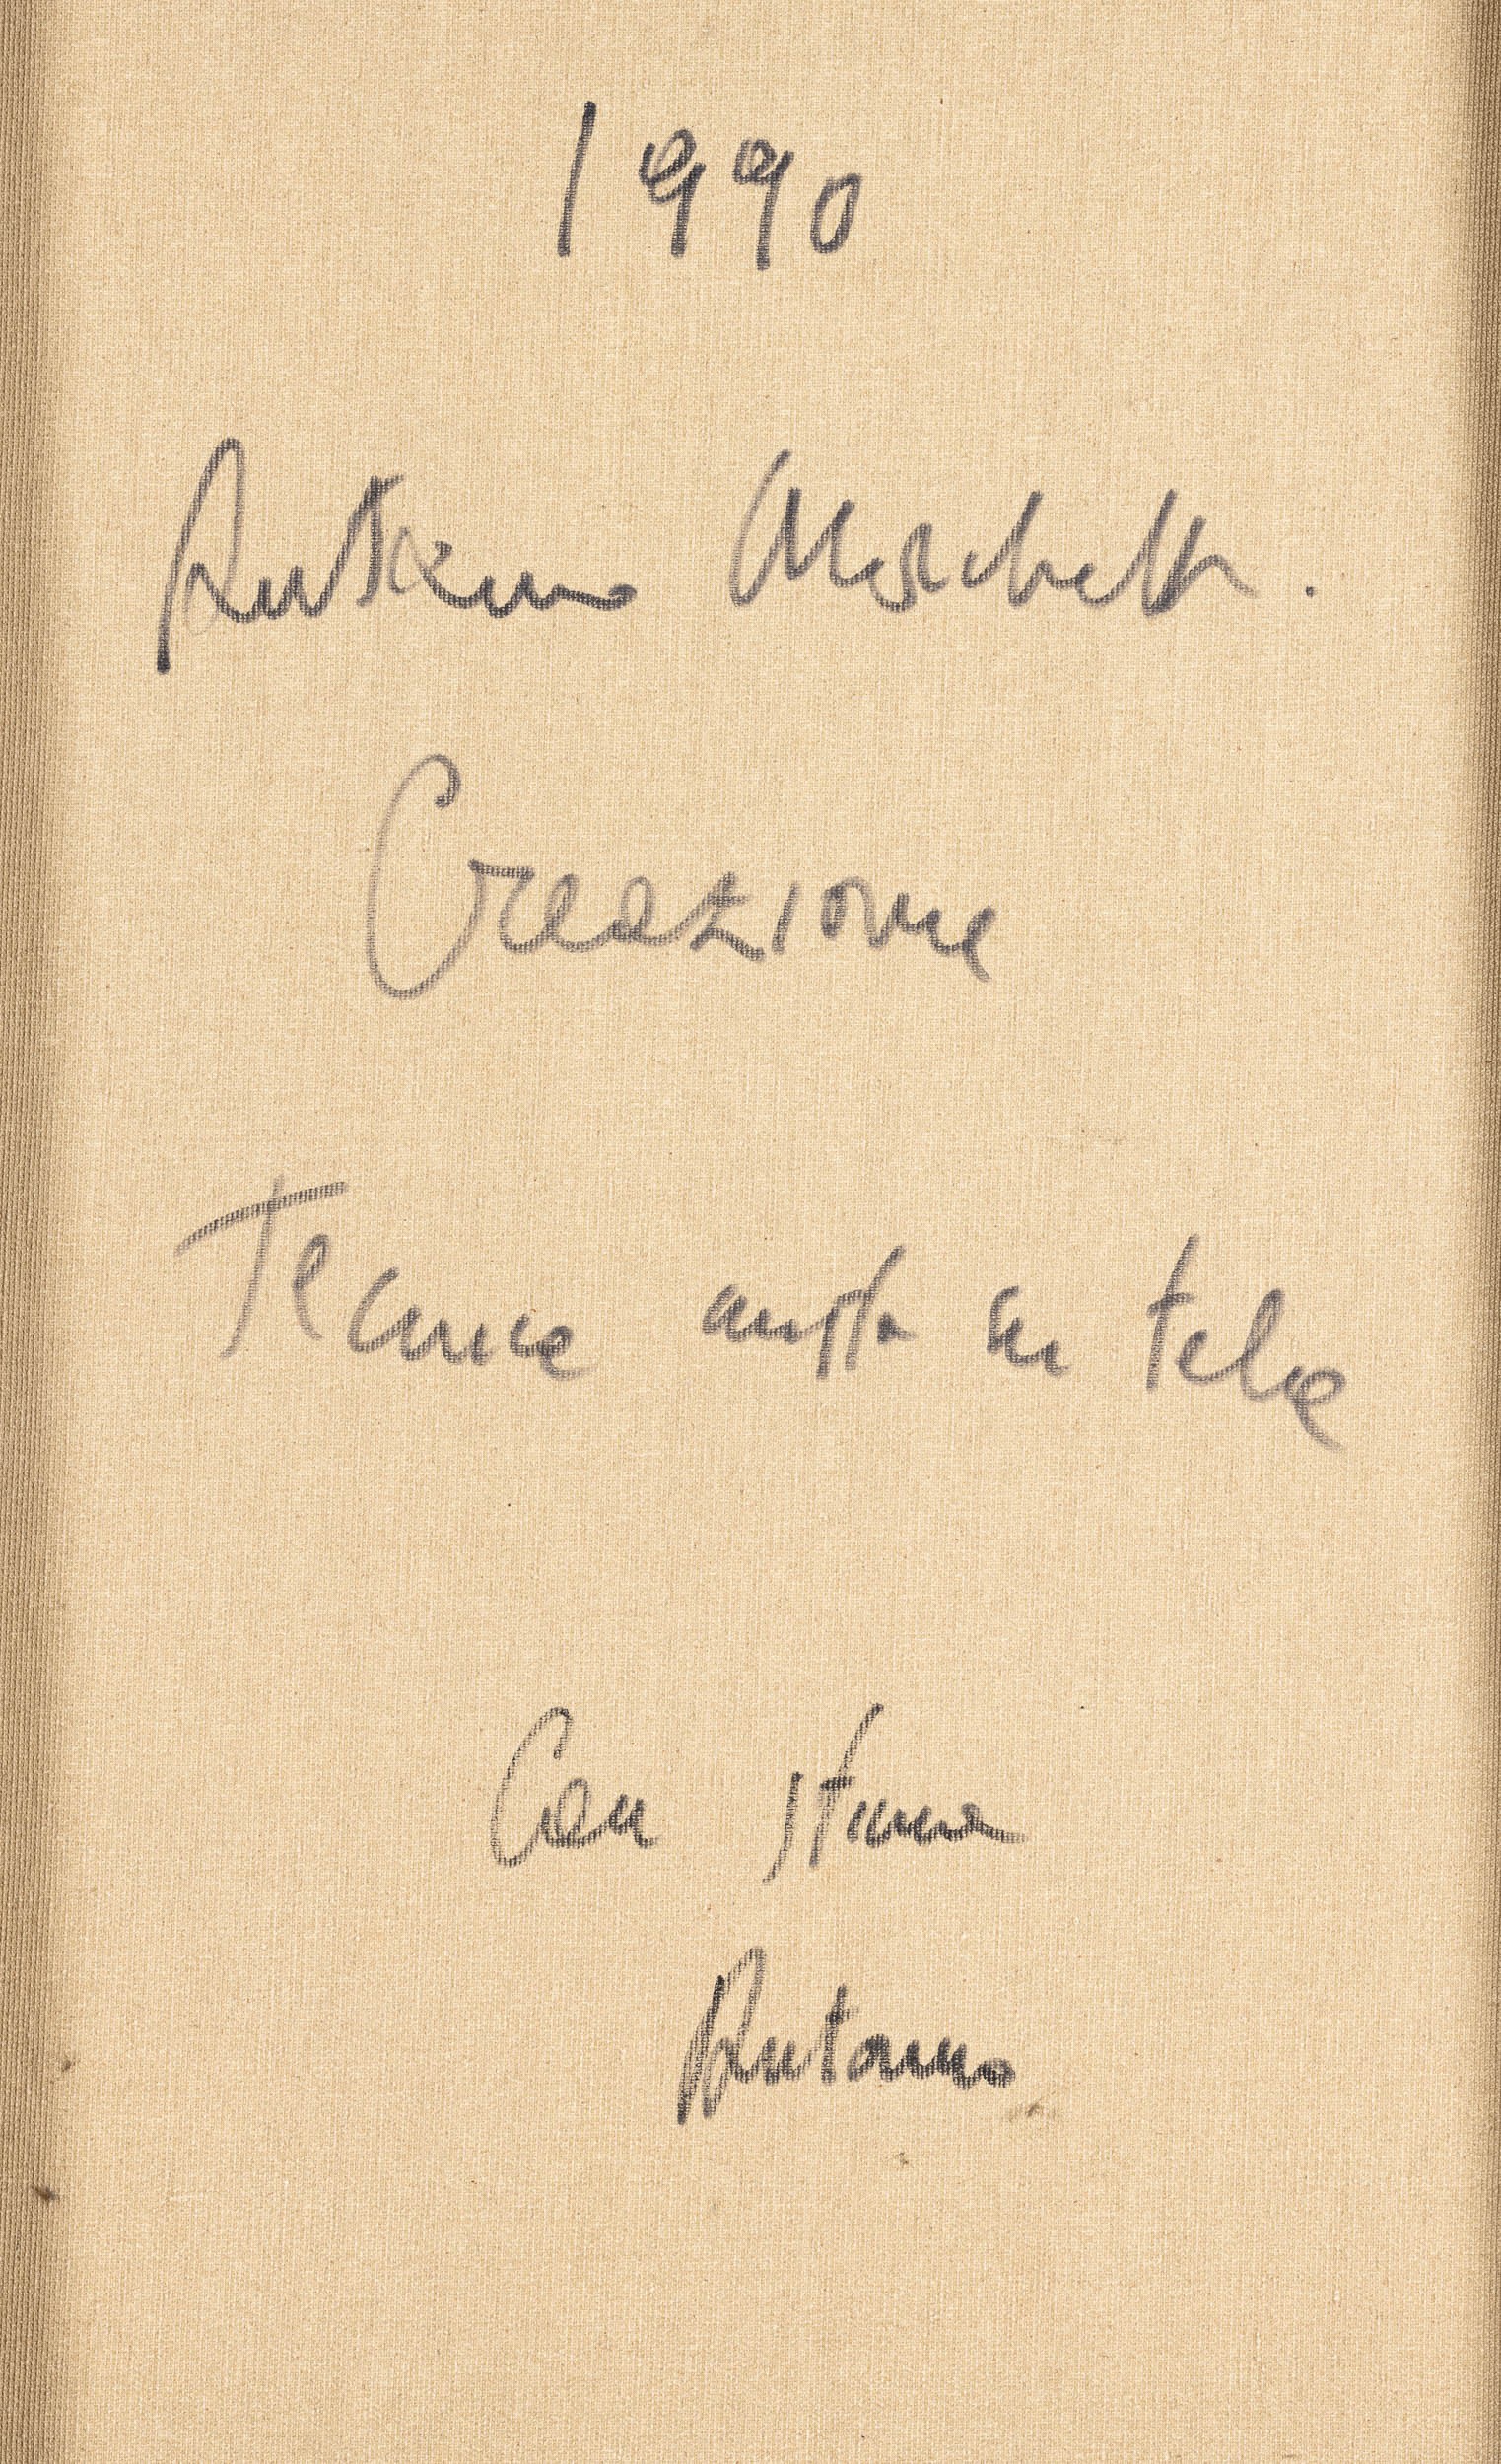 1990
Antonio Meschelli.
Creazione
Tecnica mista su tela
Con stima
Antonio